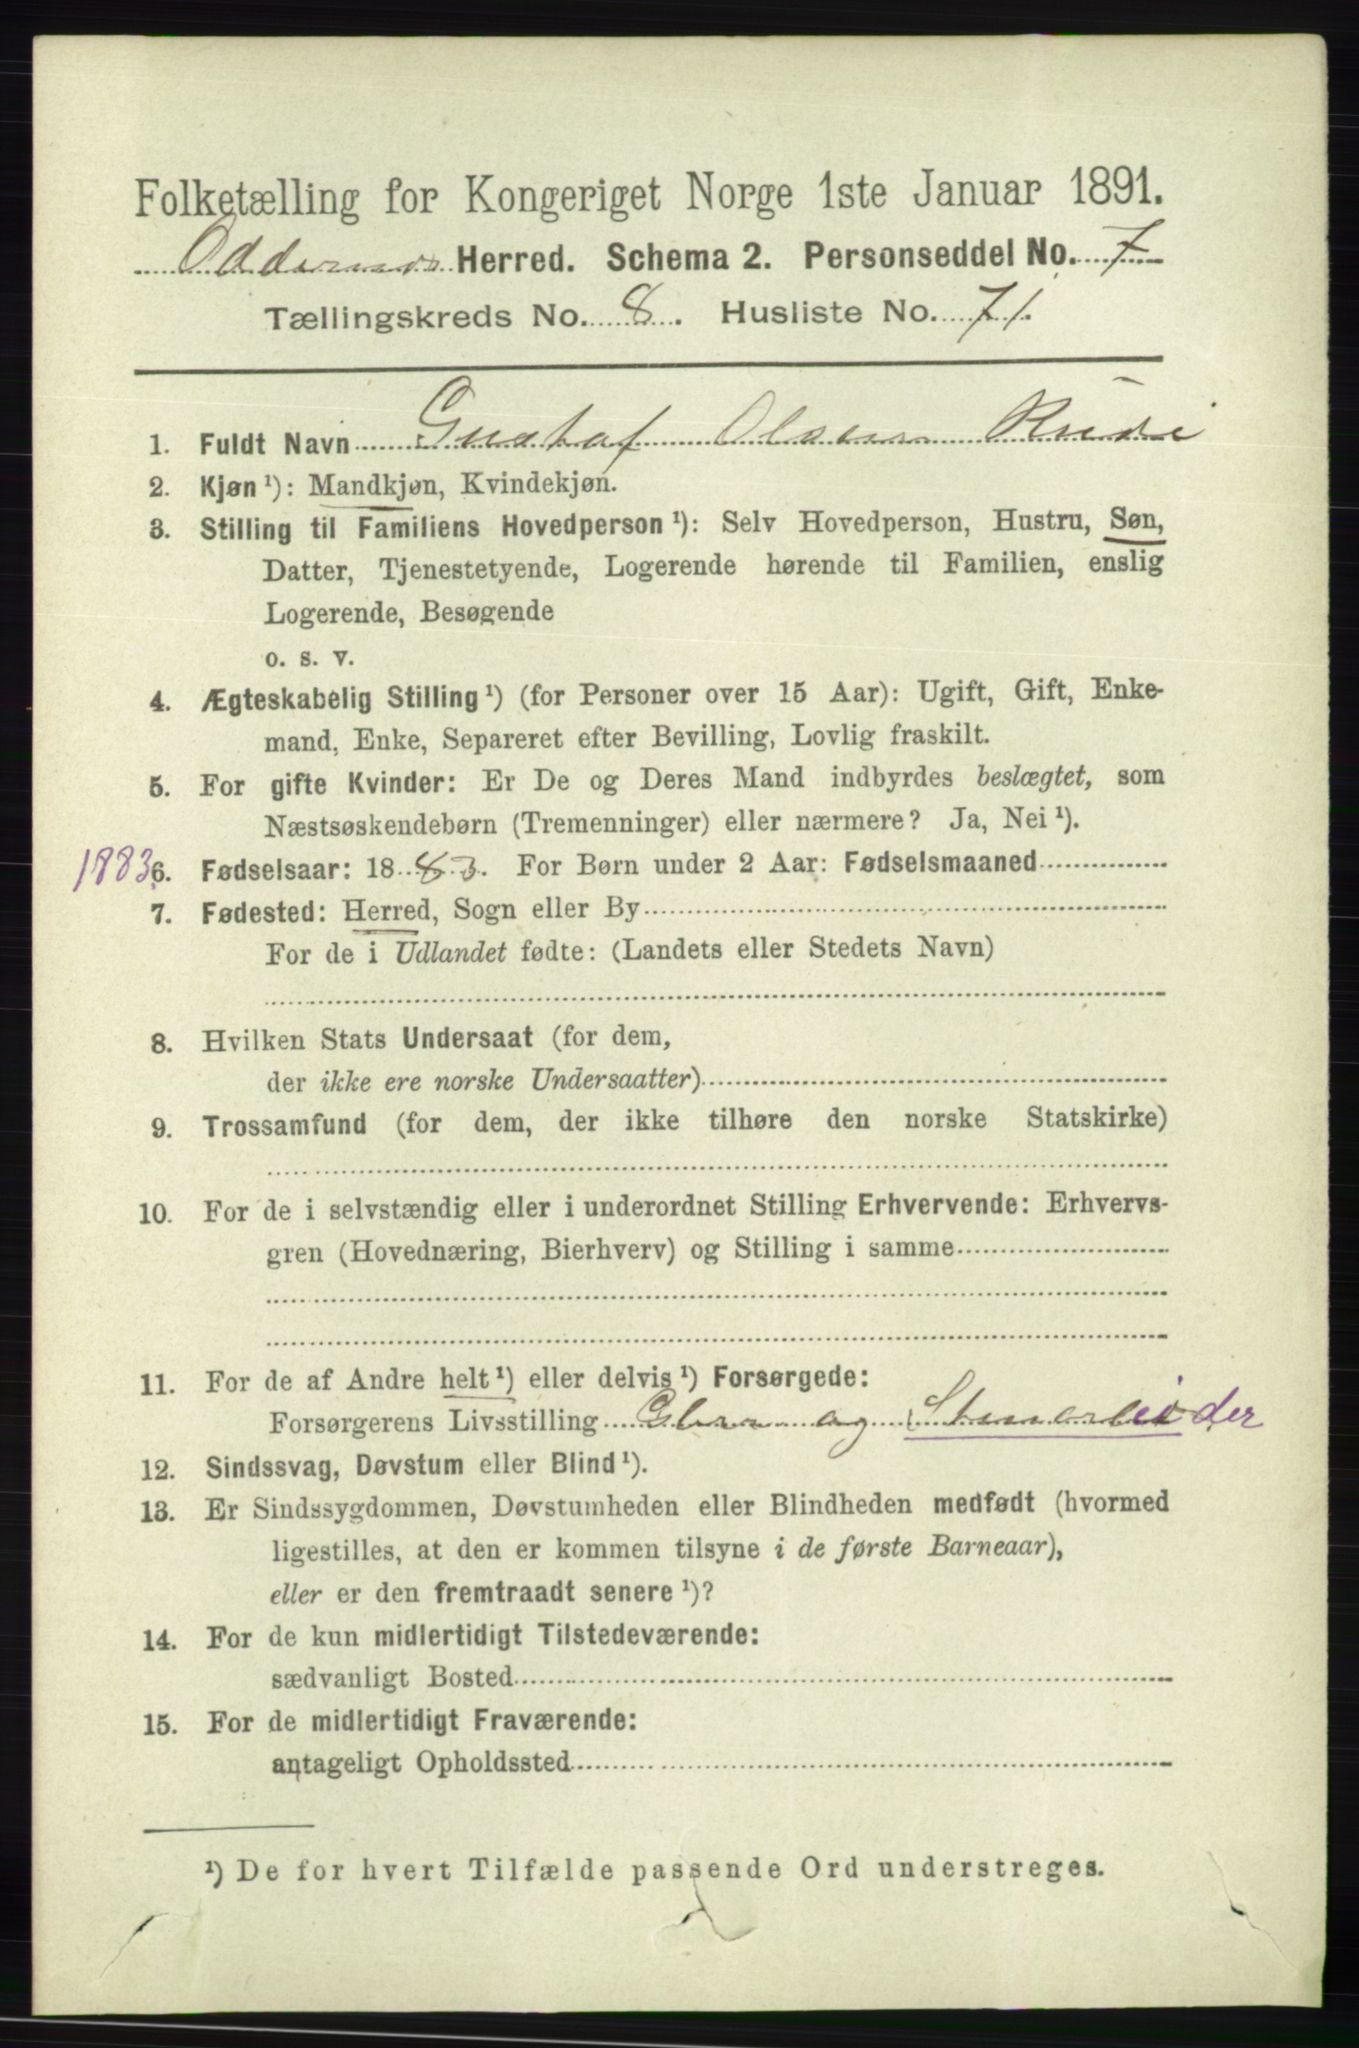 Folketælling for Kongeriget Norge 1ste Januar 1891.
Oddernes Herred. Schema 2. Personseddel No. 7
Tællingskreds No. 8. Husliste No. 71.
1. Fuldt Navn Gustaf Olsen
2. Kjøn ¹): Mandkjøn, Kvindekjøn.
3. Stilling til Familiens Hovedperson ¹): Selv Hovedperson, Hustru, Søn,
Datter, Tjenestetyende, Logerende hørende til Familien, enslig
Logerende, Besøgende
o. s. v.
4. Ægteskabelig Stilling ¹) (for Personer over 15 Aar): Ugift, Gift, Enke-
mand, Enke, Separeret efter Bevilling, Lovlig fraskilt.
5. For gifte Kvinder: Er De og Deres Mand indbyrdes beslægtet, som
Næstsøskendebørn (Tremenninger) eller nærmere? Ja, Nei ¹).
1883 6. Fødselsaar: 18 83. For Børn under 2 Aar: Fødselsmaaned
7. Fødested: Herred, Sogn eller By
For de i Udlandet fødte: (Landets eller Stedets Navn)
8. Hvilken Stats Undersaat (for dem,
der ikke ere norske Undersaatter)
9. Trossamfund (for dem, der ikke tilhøre den norske Statskirke)
10. For de i selvstændig eller i underordnet Stilling Erhvervende: Erhvervs-
gren (Hovednæring, Bierhverv) og Stilling i samme
11. For de af Andre helt ¹) eller delvis ¹) Forsørgede:
Forsørgerens Livsstilling og Stenarbeider
12. Sindssvag, Døvstum eller Blind ¹).
13. Er Sindssygdommen, Døvstumheden eller Blindheden medfødt (hvormed
ligestilles, at den er kommen tilsyne i de første Barneaar),
eller er den fremtraadt senere ¹)?
14. For de kun midlertidigt Tilstedeværende:
sædvanligt Bosted
15. For de midlertidigt Fraværende:
antageligt Opholdssted
¹) De for hvert Tilfælde passende Ord understreges.